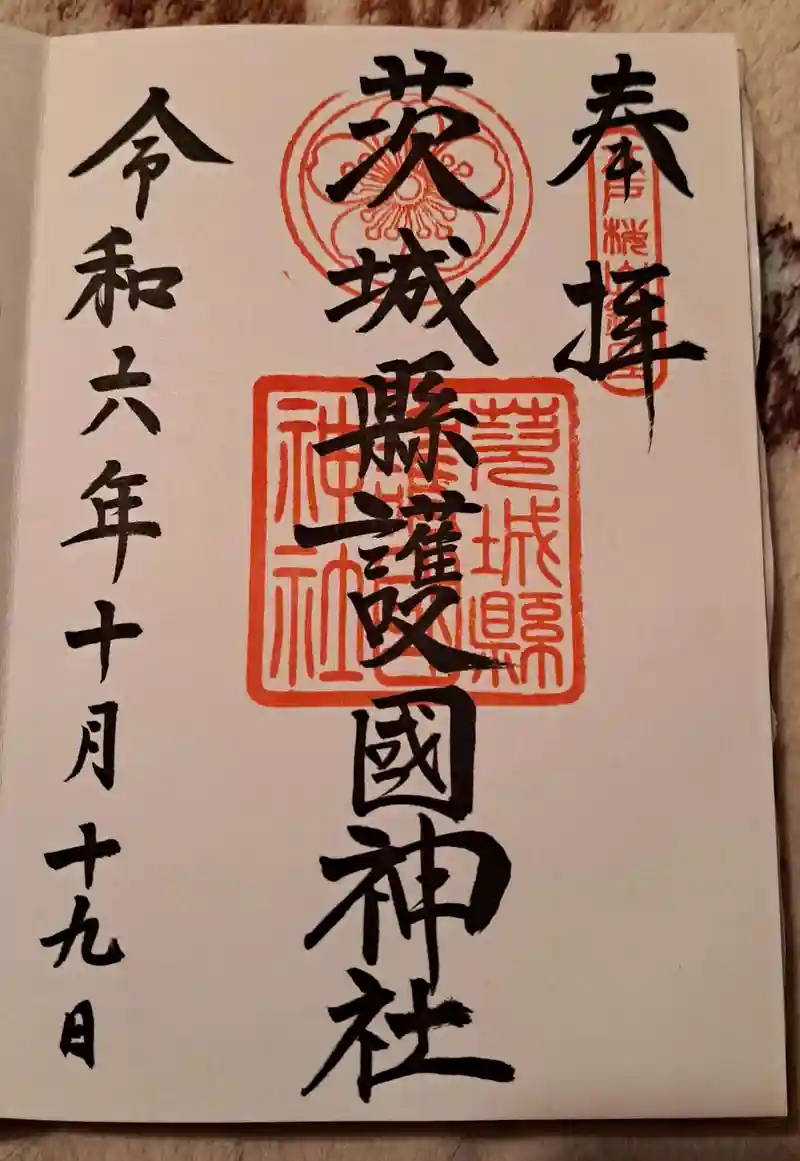 奉拝
茨城縣護國神社
茨城縣
護國
神社
令和六年十月十九日